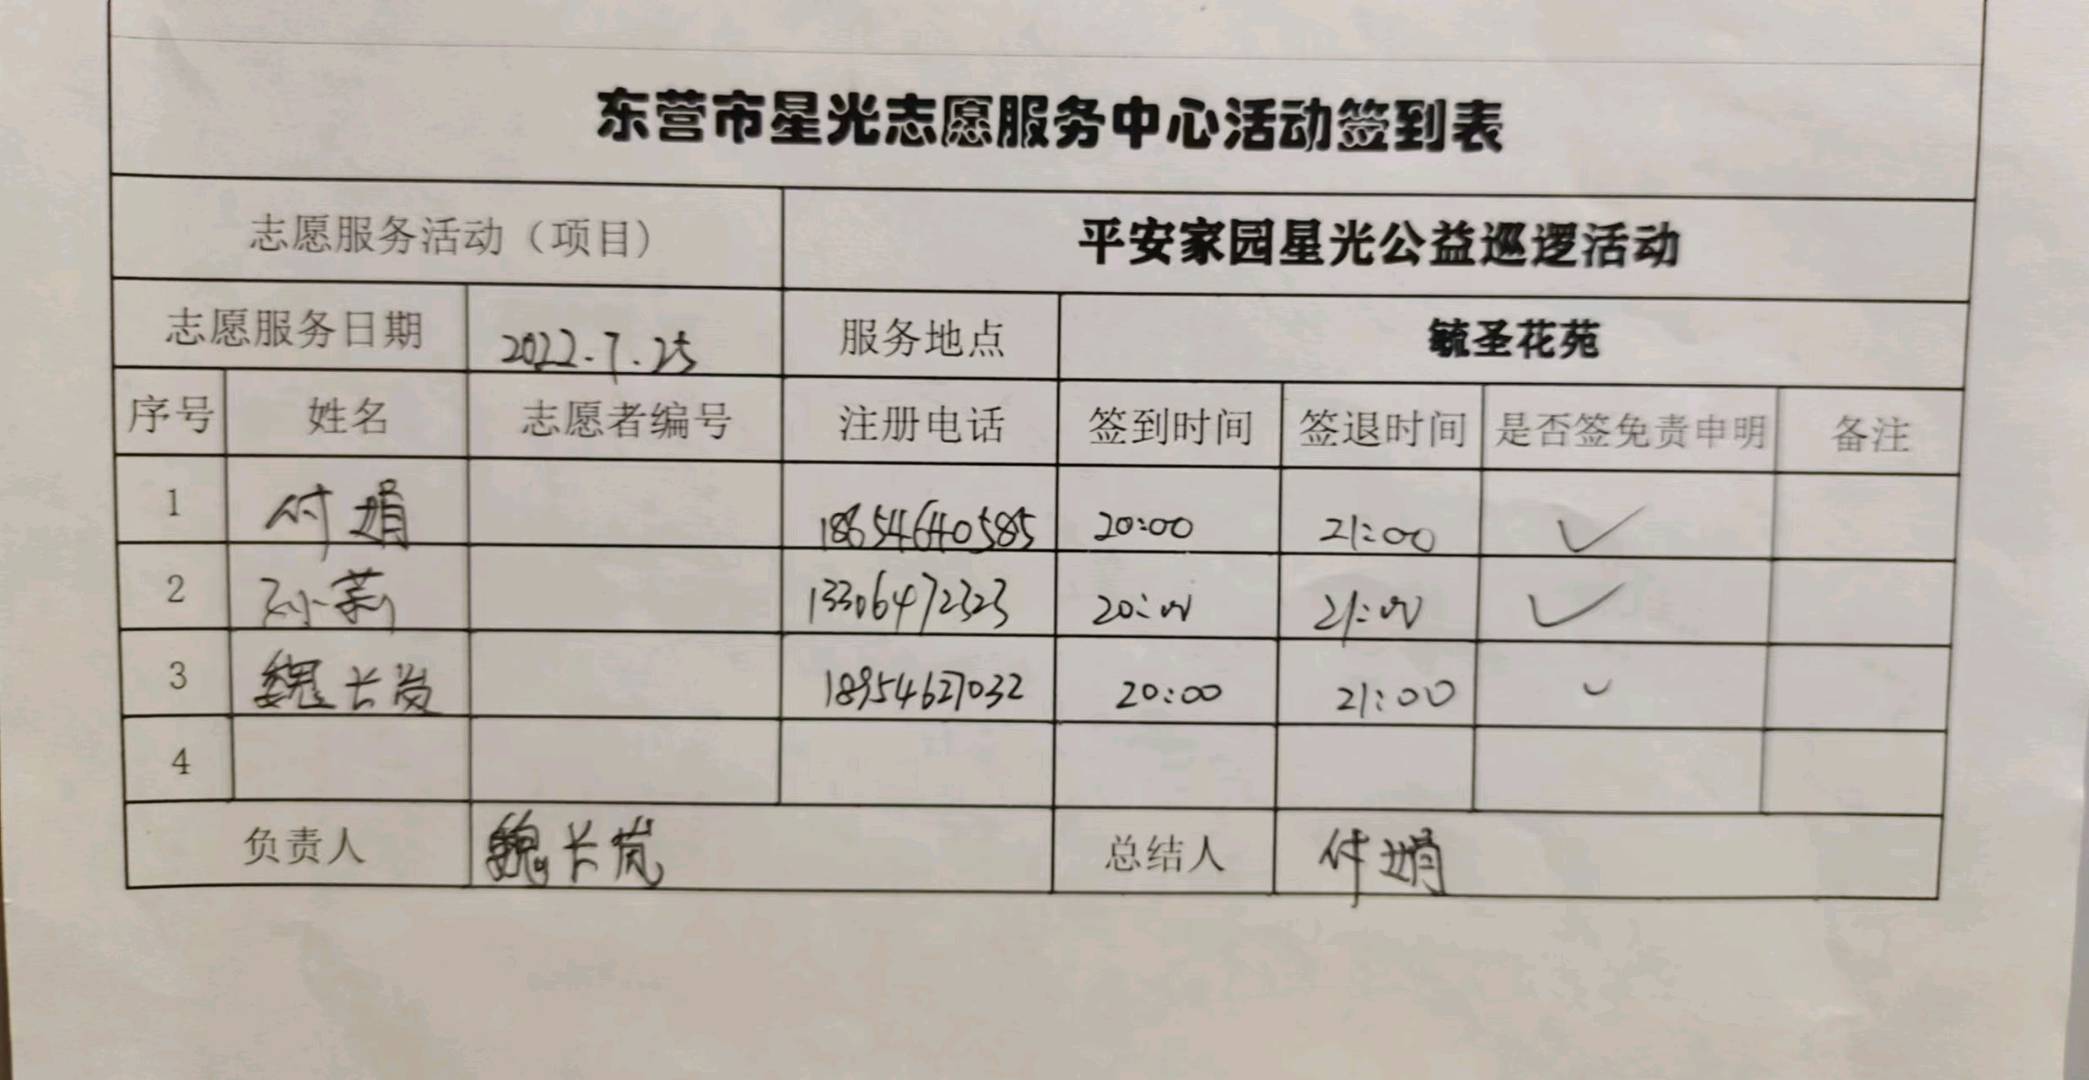 东营市星光志愿服务中心活动签到表
志愿服务活动（项目） 平安家园星光公益巡逻活动
志愿服务日期 2022.7.25 服务地点 毓圣花苑
序号 姓名 志愿者编号 注册电话 签到时间 签退时间 是否签免责申明 备注
1 付娟 18654640585 20:00 21:00 ✓
2 孙莉 13306472323 20:00 21:00 ✓
3 魏长岚 18954627032 20:00 21:00 ✓
4
负责人 魏长岚 总结人 付娟